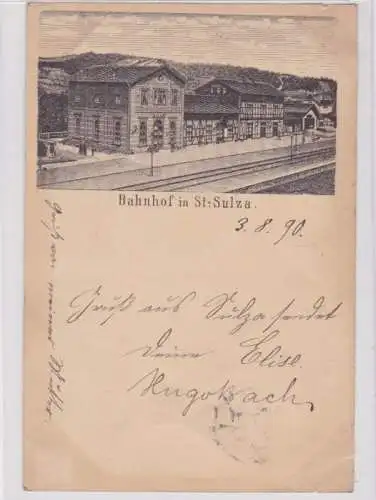 Bahnhof in St-Sulza.
3. 8. 90.
Gruß aus Sulza sendet
Deine Elise.
Hugo Bach
Gruß von meiner Mutter.